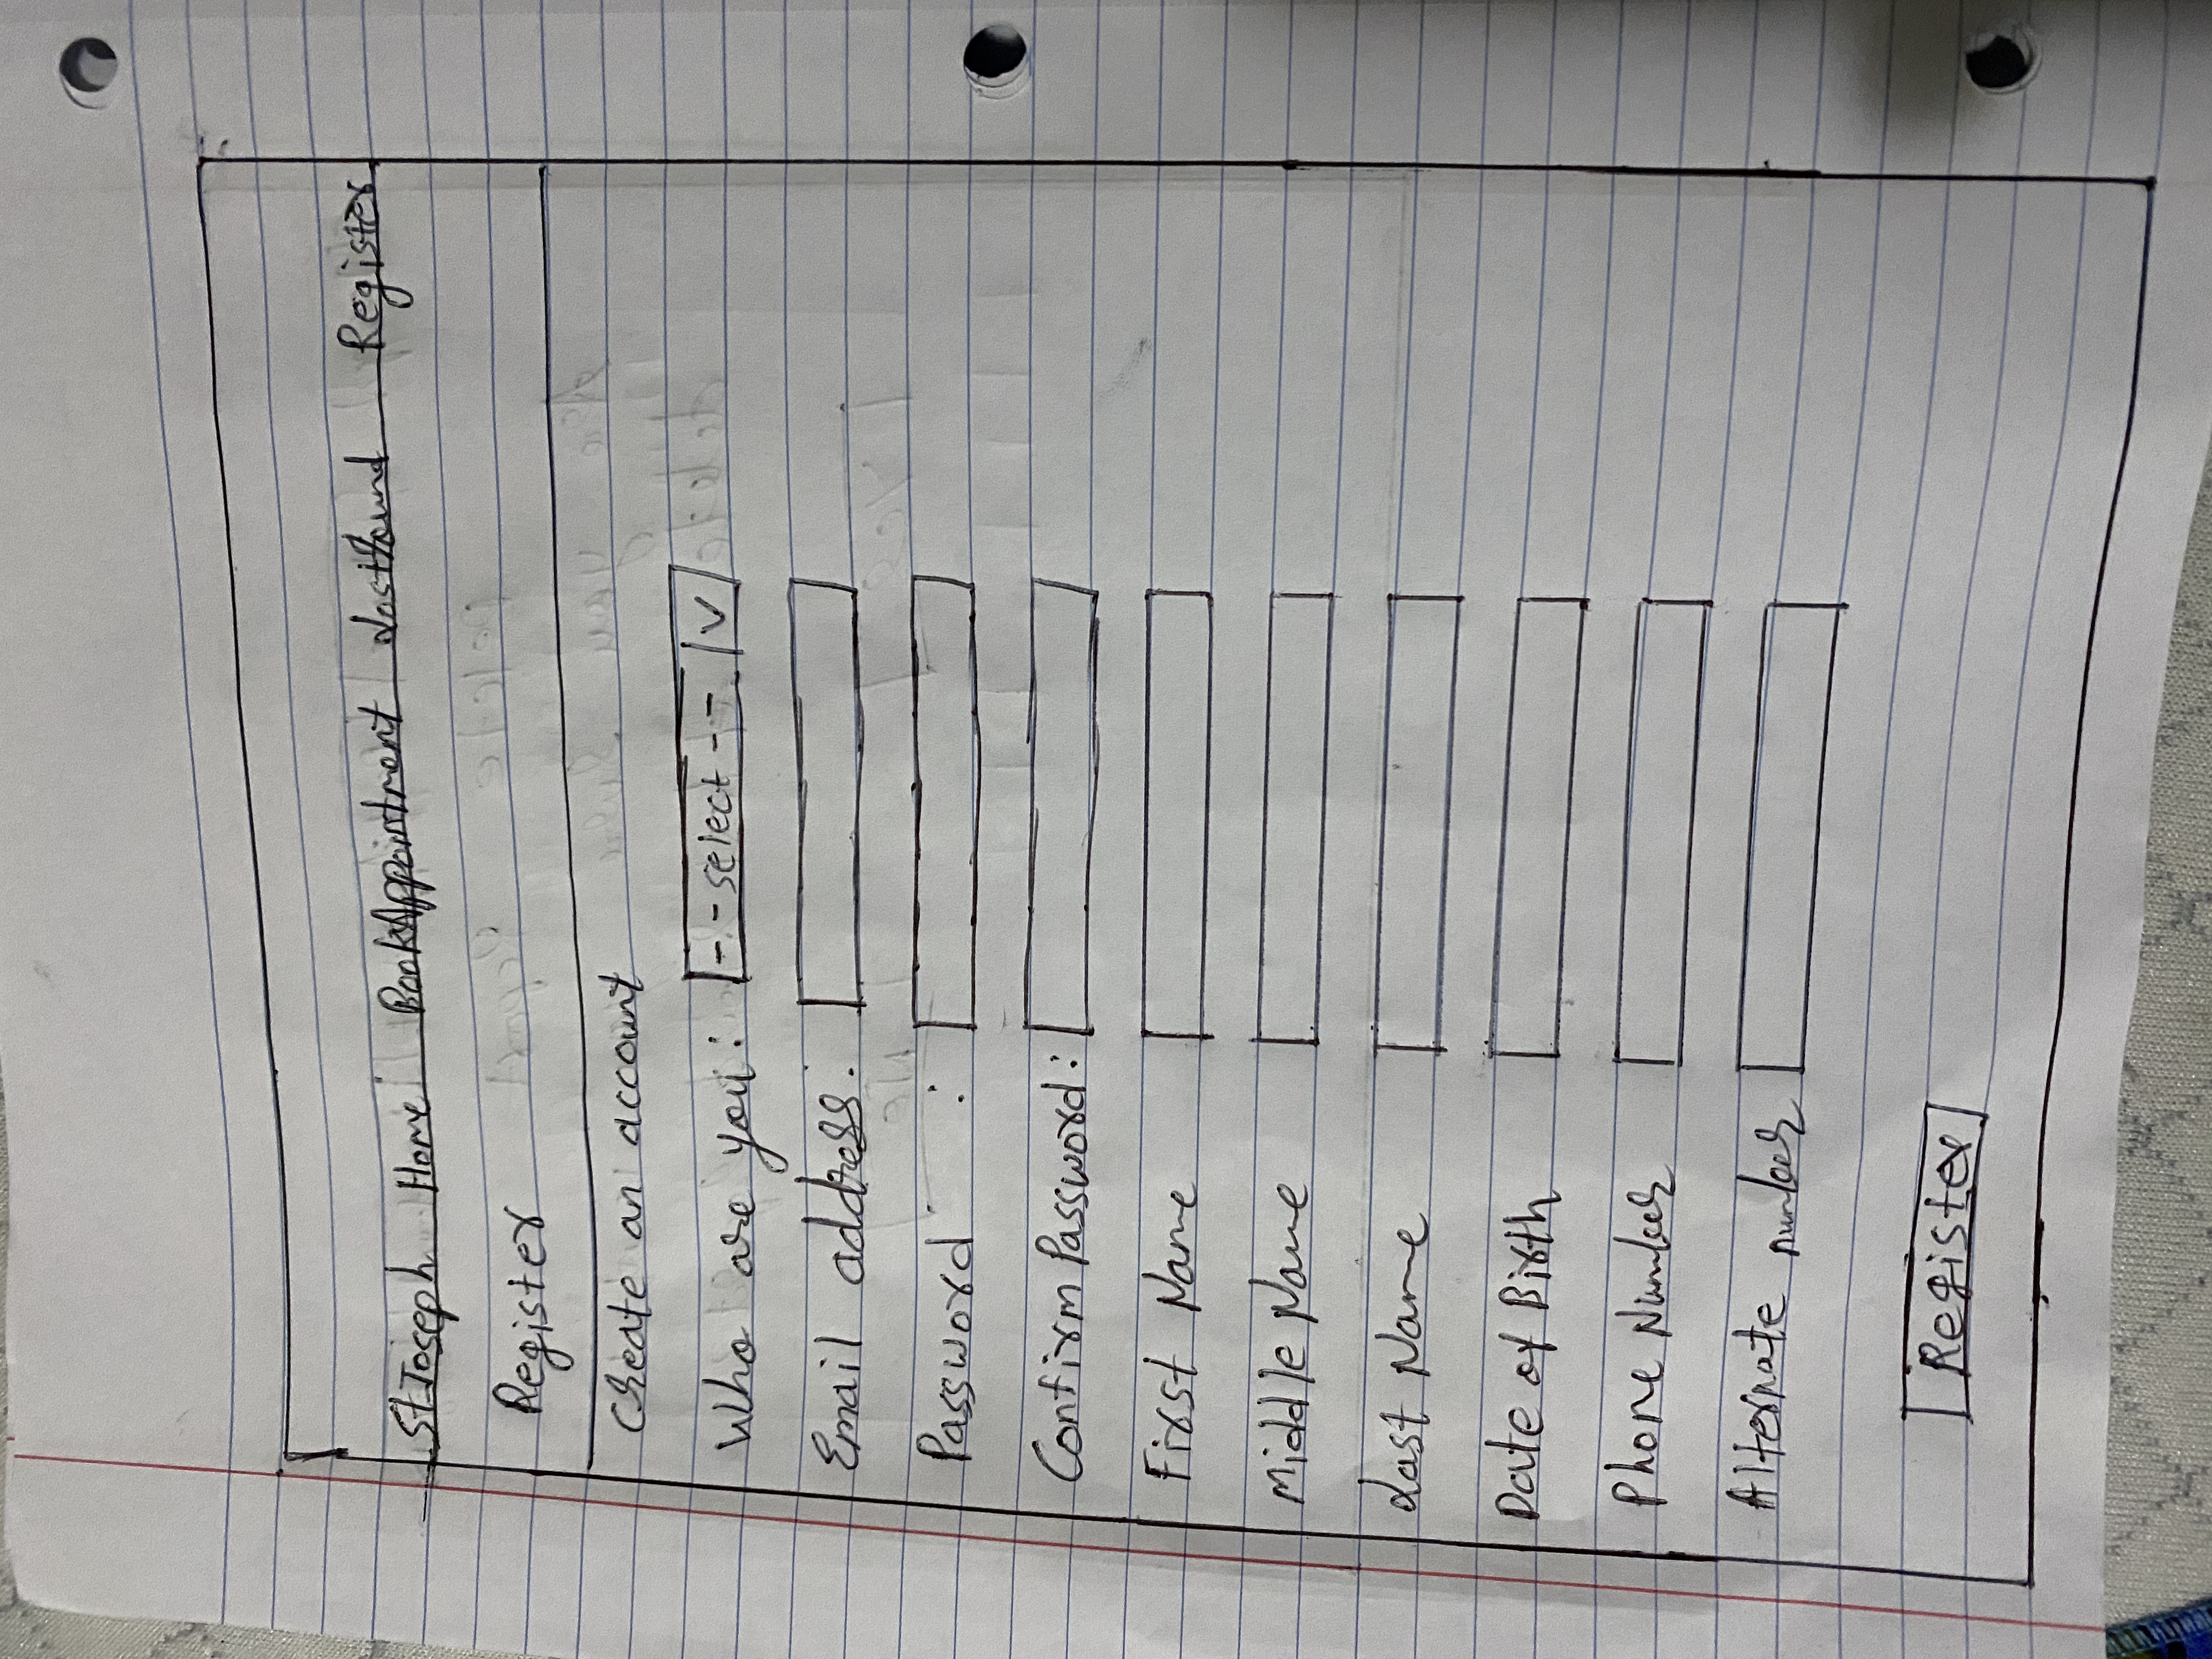 StJoseph Home BookAppointment Lost/Found Register
Register
Create an account
Who are you: --select-- V
Email address:
Password :
Confirm Password:
First Name
Middle Name
Last Name
Date of Birth
Phone Number
Alternate number
Register